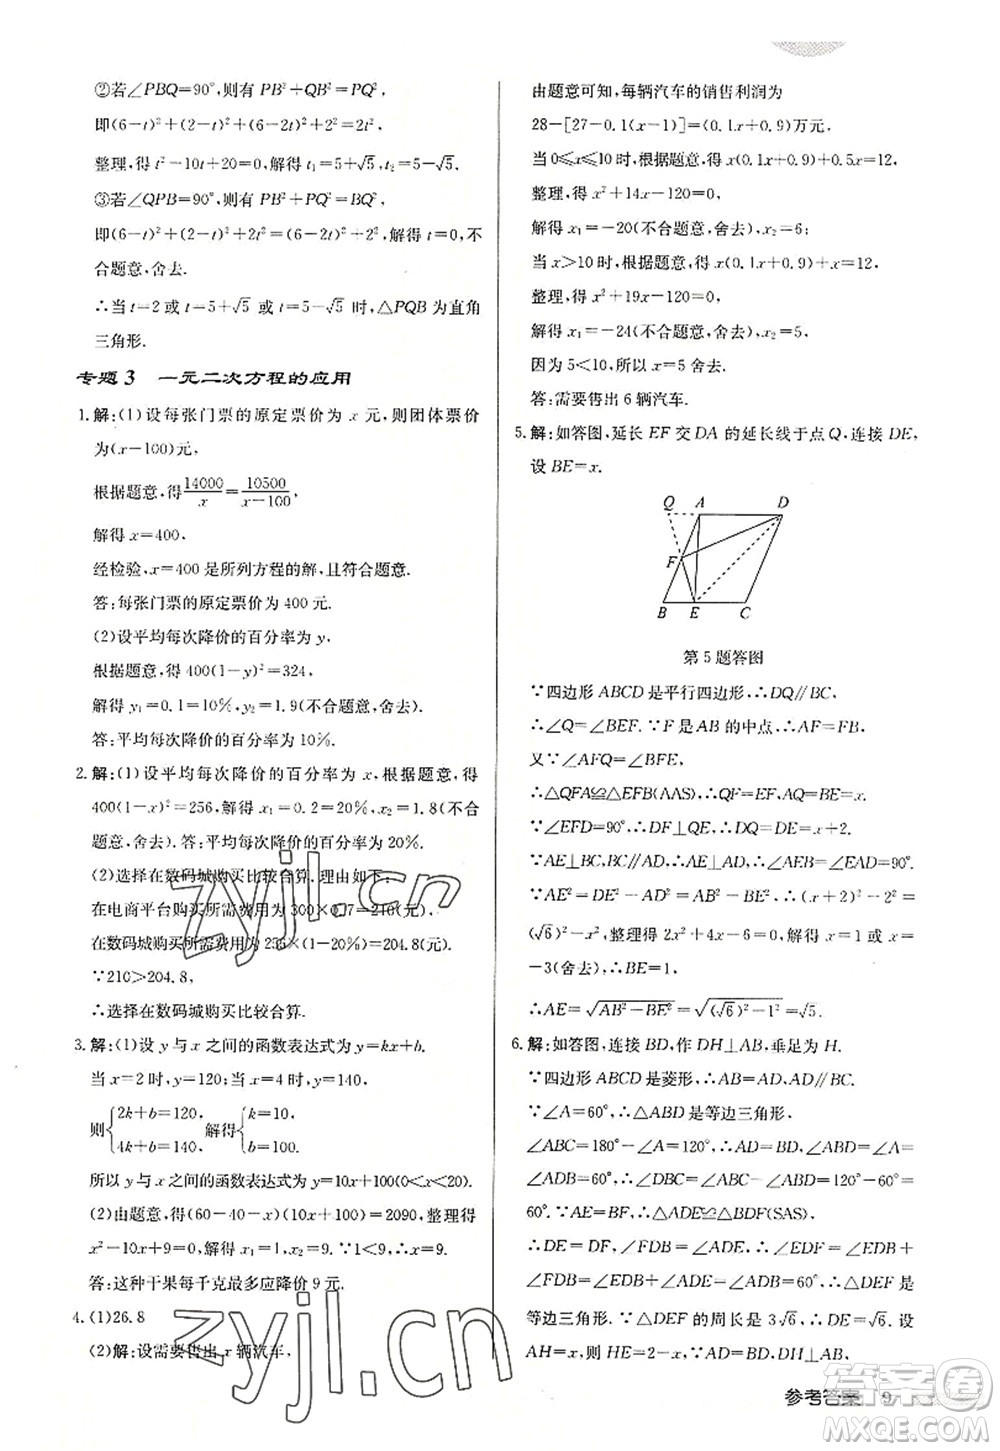 ②若∠PBQ=90°,则有 PB²+BQ²=PQ²,
即(6-t)²+(2t)²+(6-2t)²+t²=(6-t)²+2²,
整理,得 t²-10t+20=0,解得 t₁=5+√5,t₂=5-√5.
③若∠QPB=90°,则有 PB²+PQ²=BQ²,
合题意,舍去.
∴当 t=2 或 t=5+√5 或 t=5-√5 时,△PQB 为直角
三角形.
专题 3 一元二次方程的应用
1.解:(1)设每张门票的原定票价为 x 元,则团体票价
为(x-100)元,
根据题意,得14000/x=10500/(x-100),
解得 x=400,
经检验,x=400 是所列方程的解,且符合题意.
答:每张门票的原定票价为 400 元.
(2)设平均每次降价的百分率为 y,
根据题意,得 400(1-y)²=324,
解得 y₁=0.1=10%,y₂=1.9(不符合题意,舍去).
答:平均每次降价的百分率为 10%.
2.解:(1)设平均每次降价的百分率为 x,根据题意,得
400(1-x)²=256,解得 x₁=0.2=20%,x₂=1.8(不合
题意,舍去).答:平均每次降价的百分率为 20%.
(2)选择在数码城购买比较合算.理由如下:
在电商平台购买所需费用为 300×0.7=210(元),
在数码城购买所需费用为 256×(1-20%)=204.8(元).
∵210>204.8,
∴选择在数码城购买比较合算.
3.解:(1)设 y 与 x 之间的函数表达式为 y=kx+b.
当 x=2 时,y=120;当 x=4 时,y=140,
则{2k+b=120, 4k+b=140, 解得{k=10, b=100.
所以 y 与 x 之间的函数表达式为 y=10x+100(0<x<20).
(2)由题意,得(60-40-x)(10x+100)=2090,整理,得
x²-10x+9=0.解得 x₁=1,x₂=9.∵1<9,∴x=9.
答:这种干果每千克最多应降价 9 元.
4.(1)26.8
(2)解:设需要售出 x 辆汽车,
由题意可知,每辆汽车的销售利润为
28-[27-0.1(x-1)]=(0.1x+0.9)万元,
当 0≤x≤10 时,根据题意,得 x(0.1x+0.9)+0.5x=12,
整理,得 x²+14x-120=0,
解得 x₁=-20(不合题意,舍去),x₂=6;
当 x>10 时,根据题意,得 x(0.1x+0.9)+x=12,
整理,得 x²+19x-120=0,
解得 x₁=-24(不合题意,舍去),x₂=5,
因为 5<10,所以 x₂=5 舍去.
答:需要售出 6 辆汽车.
5.解:如答图,延长 EF 交 DA 的延长线于点 Q,连接 DE,
设 BE=x.
Q A D
F
B E C
第 5 题答图
∵四边形 ABCD 是平行四边形,∴DQ∥BC,
∴∠Q=∠BEF.∵F 是 AB 的中点,∴AF=FB,
又∵∠AFQ=∠BFE,
∴△QFA≌△EFB(AAS),∴QF=EF,AQ=BE=x,
∵∠EFD=90°,∴DF⊥QE,∴DQ=DE=x+2.
∵AE⊥BC,BC∥AD,∴AE⊥AD,∴∠AEB=∠EAD=90°.
∵AE²=DE²-AD²=AB²-BE²,∴(x+2)²-2²=
(√6)²-x²,整理得 2x²+4x-6=0,解得 x=1 或 x=
-3(舍去),∴BE=1.
∴AE=√(AB²-BE²)=√((√6)²-1²)=√5.
6.解:如答图,连接 BD,作 DH⊥AB,垂足为 H.
∵四边形 ABCD 是菱形,∴AD=AB,AD∥BC.
∵∠A=60°,∴△ABD 是等边三角形,
∠ABC=180°-∠A=120°,∴AD=BD,∠ABD=
∠A=∠ADB=60°,∴∠DBC=∠ABC-∠ABD=
60°.∵AE=BF,∴△ADE≌△BDF(SAS).∴
DE=DF,∠FDB=∠ADE,∴∠EDF=∠EDB+
∠FDB=∠EDB+∠ADE=∠ADB=60°,∴△DEF 是
等边三角形.∵△DEF 的周长是 3√6,∴DE=√6.设
AH=x,则 HE=2-x,∵AD=BD,DH⊥AB,
参考答案 9
zyjl.cn
zyjl.cn
答案圈
MXQE.COM